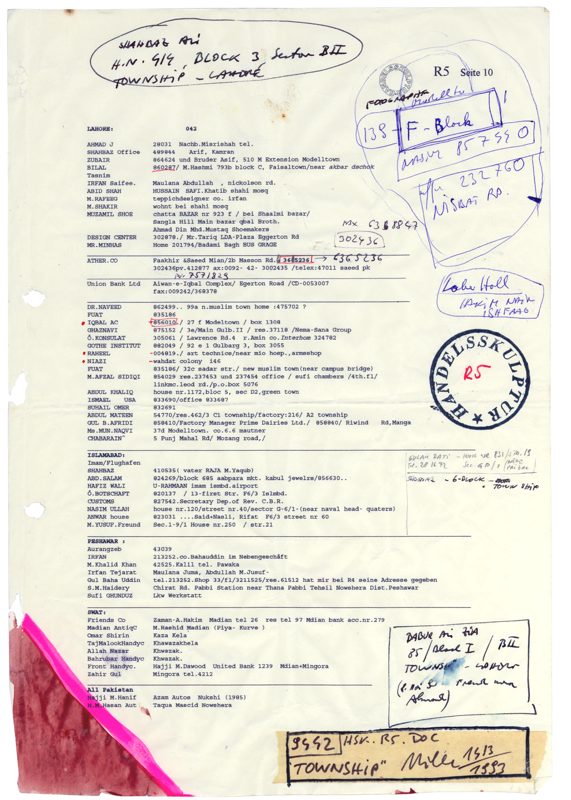 SHAHBAZ Ali
H.N. 9/9, BLOCK 3, Sector BII
TOWNSHIP - LAHORE
R5 Seite 10
FOTOGRAPHA
138 - F - Block
NASIR 857990
232760
NISBAT RD.
LAHORE: 042
AHMAD J 28031 Nachb.Misriehah tel.
SHAHBAZ Office 409844 Arif, Kamran
ZUBAIR 864624 und Bruder Asif, 510 M Extension Modelltown
BILAL 860287/ M.Hashmi 793b block C, Faisaltown/near akbar dschok
Tasnim
IRFAN Saifee. Maulana Abdullah , nickolson rd.
ABID SHAH HUSSAIN SAFI.Khatib shahi mosq
M.RAFEEG teppichdesigner co. irfan
M.SHAKIR wohnt bei shahi mosq
MUZAMIL SHOE chatta BAZAR nr 923 f / bei Shaalmi bazar/
Sangla Hill Main bazar qbal Broth.
Ahmad Din Mhd.Mustaq Shoemakers
DESIGN CENTER 302878./ Mr.Tariq LDA-Plaza Eggerton Rd
MR.MINHAS Home 201794/Badami Bagh BUS GRAGE
302436
ATHER.CO Faakhir &Saeed Mian/2b Masson Rd. 3605236 → 6365236
302436pv.412877 ax:0092- 42- 3002435 /telex:47011 saeed pk
Nr. 7571829
Union Bank Ltd Aiwan-e-Iqbal Complex/ Egerton Road /CD-0053007
fax:009242/368378
HANDELSSKULPTUR
R5
DR.NAVEED 862499.. 99a n.muslim town home :475702 ?
FUAT 835186
IQBAL AC 856010 / 27 f Modeltown / box 1308
GHAZNAVI 875152 / 3e/Main Gulb.II / res.37118 /Nema-Sana Group
Ö.KONSULAT 305061 / Lawrence Rd.4 r.Amin co.Interhom 324782
GOTHE INSTITUT 882049 / 92 e 1 Gulbarg 3, box 3055
RAHEEL -006819./ art technice/near mio hoep.,armeshop
NIAZI --wahdat colony 146
FUAT 835186/ 32c sadar str./ new muslim town(near campus bridge)
M.AFZAL SIDIQI 854029 res.237453 usd 237454 office / sufi chambers /4th.fl/
linkmc.leod rd./p.o.box 5076
ABDUL KHALIQ house nr.1172,bloc 5, sec D2,green town
ISMAEL USA 833690/office 833687
SUHAIL OMER 832691
ABDUL MATEEN 54770/res.462/3 C1 township/factory:216/ A2 township
GUL B.AFRIDI 858410/Factory Manager Prime Dairies Ltd./ 858840/ Riwind Rd,Manga
Ms.MUN.NAQVI 37d Modelltown. co.6.6 mautner
CHABARAIN 5 Punj Mahal Rd/ Mozang road,/
ISLAMABAD:
Imam/Flughafen
SHAHBAZ 410535( vater RAJA M.Yaqub)
ABD.SALAM 824269/block 685 aabpara mkt. kabul jewelrs/855630..
HAFIZ WALI U-RAHMAAN imam ismbd.airport
Ö.BOTSCHAFT 820137 / 13-first Str. F6/3 Islmbd.
CUSTOMS 827542.Secretary Dep.of Rev. C.B.R.
NASIM ULLAH house nr.120/street nr.40/sector G-6/1-(near naval head- quaters)
ANWAR house 823031 ....Said=Nasli, Rifat F6/3 street nr 60
M.YUSUF.Freund Sec.1-9/1 House nr.250 / str.21
6-BLOCK
TOWNSHIP
PESHAWAR :
Aurangzeb 43039
IRFAN 213252.co.Bahauddin im Nebengeschäft
M.Khalid Khan 42525.Kalil tel. Pawaka
Irfan Tejarat Maulana Juma, Abdullah M.Jusuf-
Gul Baha Uddin tel.213252.Shop 33/fl/3211525/res.61512 hat mir bei R4 seine Adresse gegeben
S.M.Haidery Chirat Rd. Pabbi Station near Thana Pabbi Tehsil Nowshera Dist.Peshawar
Sufi GHUNDUZ Lkw Werkstatt
SWAT:
Friends Co Zaman-A.Hakim Madian tel 26 res tel 97 Mdian bank acc.nr.279
Madian AntiqC M.Rashid Madian (Piya- Kurve )
Omar Shirin Kaza Kela
TajMalookHandyc Khawazakhela
Allah Nazar Khwazak.
Behrubar Handyc Khwazak.
Front Handyc. Hajji M.Dawood United Bank 1239 Mdian+Mingora
Zahir Gul Mingora tel.4212
BABUR Ali ZIA
25/Block I / BII
TOWNSHIP - LAHORE
Ahmad)
All Pakistan
Hajji M.Hanif Azam Autos Nukshi (1985)
H.M.Hasan Aut Taqua Mascid Nowshera
9442 HSK. R5. DOC
TOWNSHIP" 1413/1993